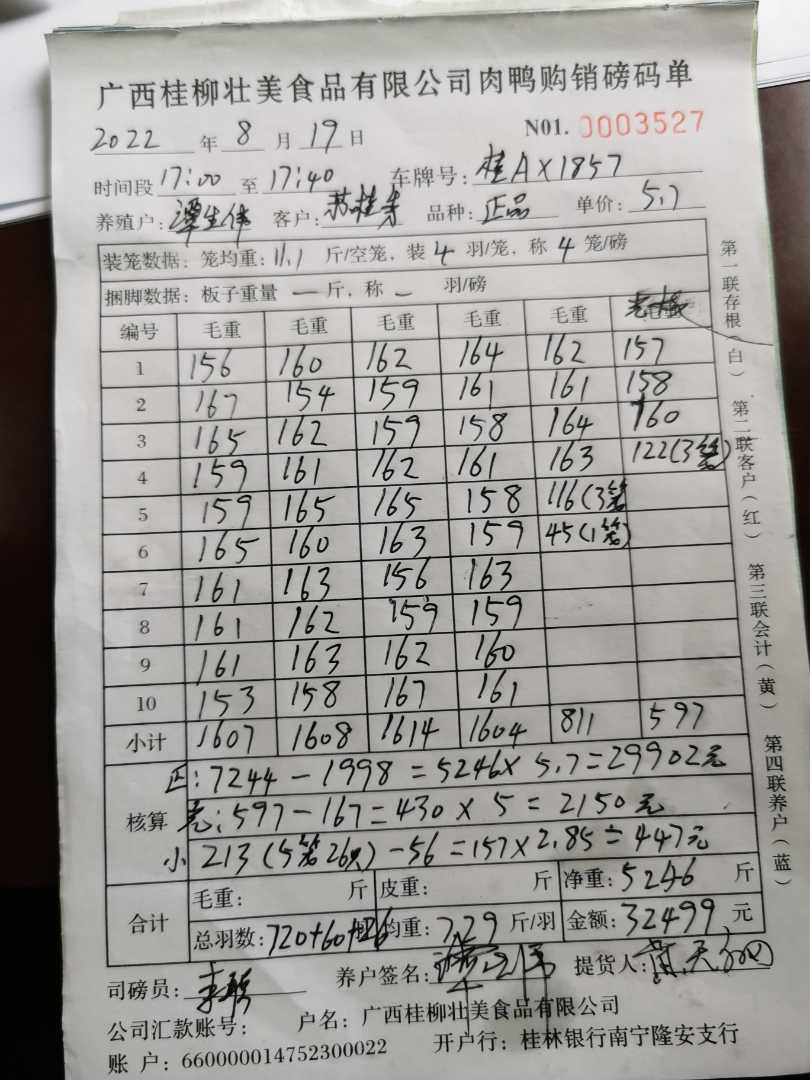 广西桂柳壮美食品有限公司肉鸭购销磅码单
2022 年 8 月 19 日 N01. 0003527
时间段 17:00 至 17:40 车牌号: 桂AX1857
养殖户: 谭生伟 客户: 品种: 正品 单价: 5.7
装笼数据: 笼均重: 11.1 斤/空笼, 装 4 羽/笼, 称 4 笼/磅
捆脚数据: 板子重量 — 斤, 称 — 羽/磅
编号 毛重 毛重 毛重 毛重 毛重
1 156 160 162 164 162 157
2 167 154 159 161 161 158
3 165 162 159 158 164 160
4 159 161 162 161 163 122(3笼)
5 159 165 165 158 116(3笼
6 165 160 163 159 45(1笼)
7 161 163 156 163
8 161 162 159 159
9 161 163 162 160
10 153 158 167 161
小计 1607 1608 1614 1604 811 597
正:7244-1998=5246×5.7=29902元
核算 壳:597-167=430×5=2150元
小 213(5笼26只)-56=157×2.85=447元
合计 毛重: 斤 皮重: 斤 净重: 5246 斤
总羽数: 720+60+26 均重: 7.29 斤/羽 金额: 32499 元
司磅员: 养户签名: 提货人:
公司汇款账号: 户名: 广西桂柳壮美食品有限公司
账 户: 660000014752300022 开户行: 桂林银行南宁隆安支行
第一联存根(白) 第二联客户(红) 第三联会计(黄) 第四联养户(蓝)